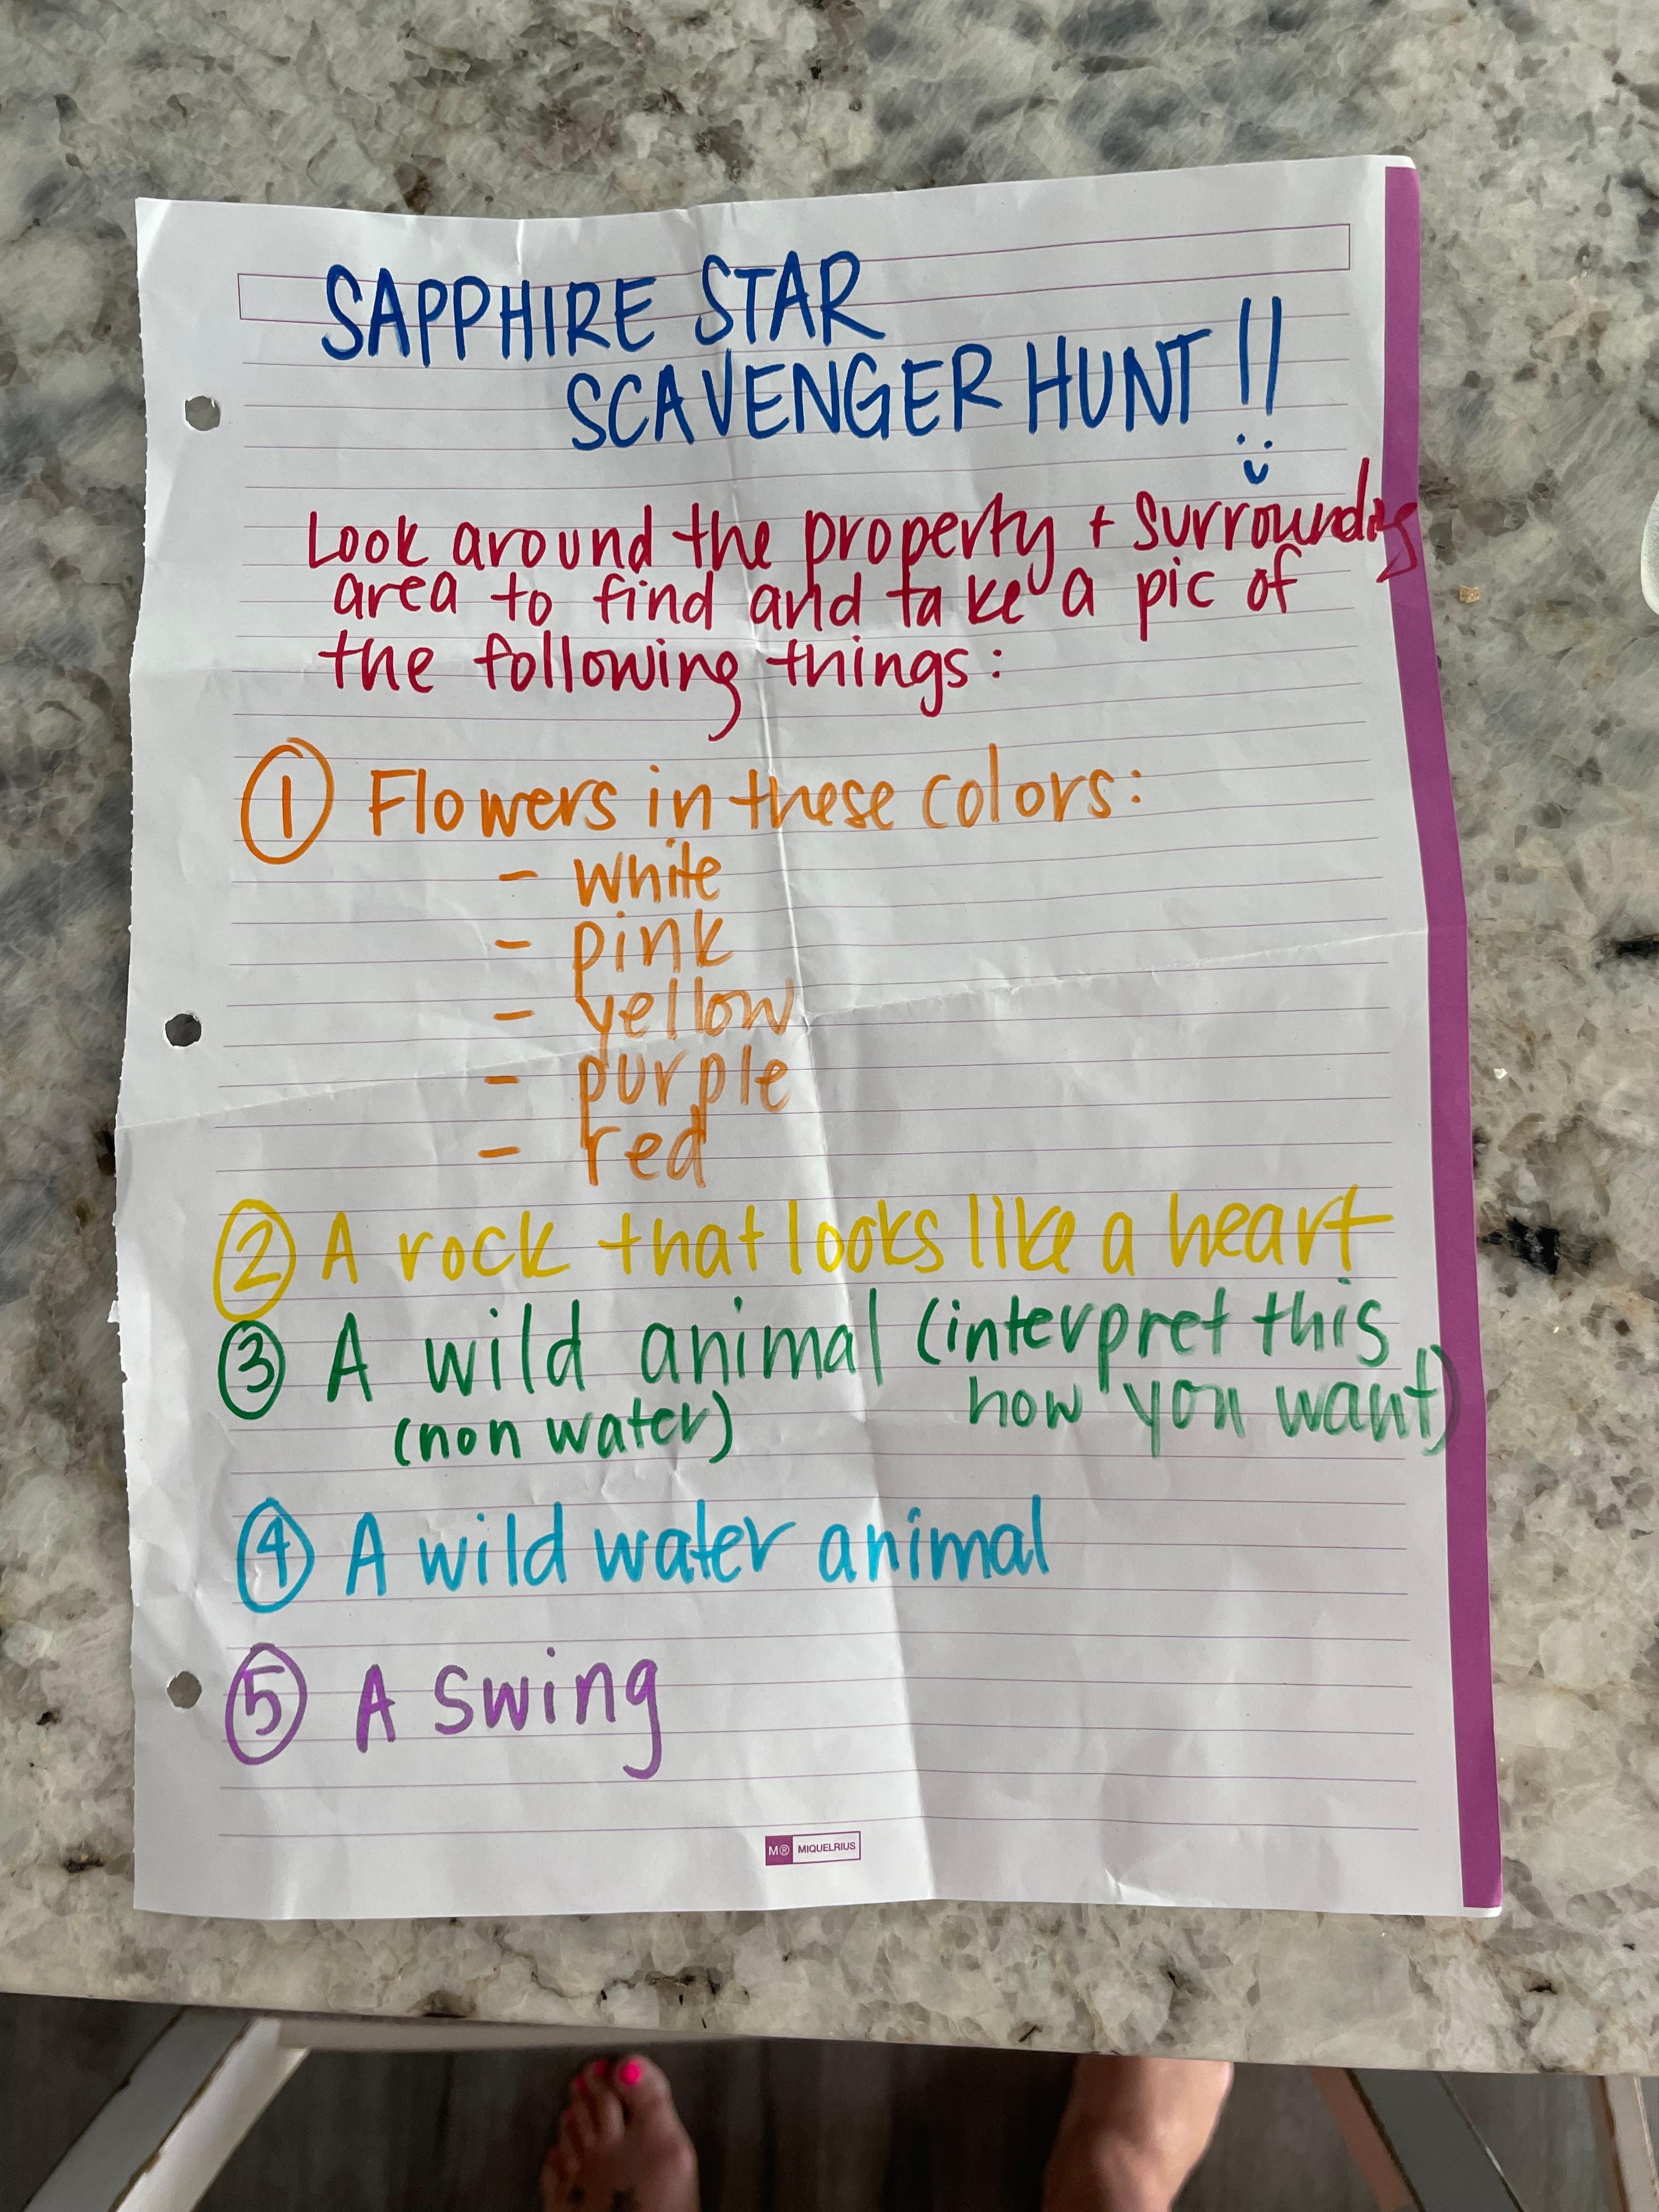 SAPPHIRE STAR
SCAVENGER HUNT!!
Look around the property + surrounding
area to find and take a pic of
the following things:
① Flowers in these colors:
- white
- pink
- yellow
- purple
- red
② A rock that looks like a heart
③ A wild animal (interpret this
(non water) how you want)
④ A wild water animal
⑤ A swing
M® MIQUELRIUS